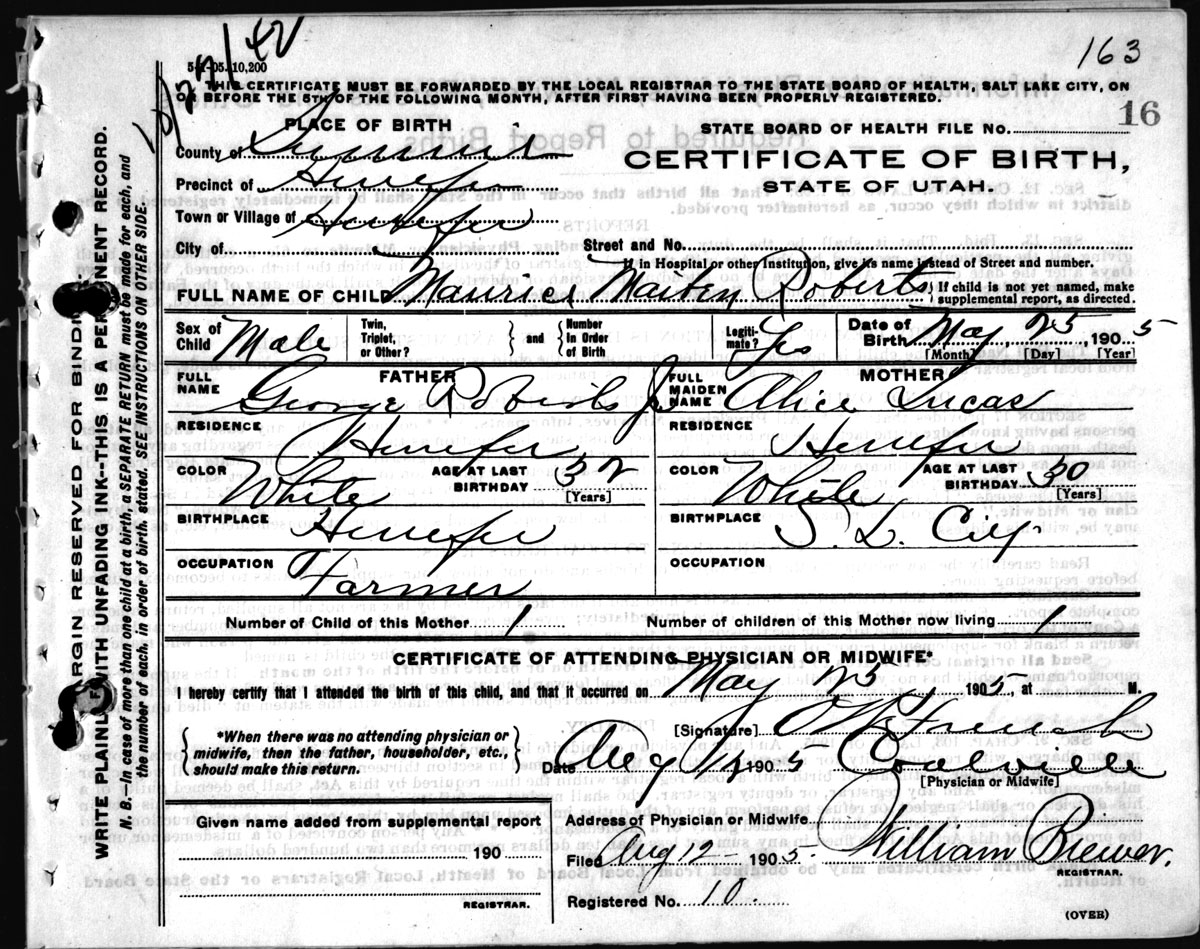 163
5-1-05. 10,200
THIS CERTIFICATE MUST BE FORWARDED BY THE LOCAL REGISTRAR TO THE STATE BOARD OF HEALTH, SALT LAKE CITY, ON
OR BEFORE THE 5TH OF THE FOLLOWING MONTH, AFTER FIRST HAVING BEEN PROPERLY REGISTERED.
16
PLACE OF BIRTH
STATE BOARD OF HEALTH FILE NO.
County of Summit
CERTIFICATE OF BIRTH,
Precinct of Henefer
STATE OF UTAH.
Town or Village of Henefer
City of
Street and No.
If in Hospital or other Institution, give its name instead of Street and number.
FULL NAME OF CHILD Maurice Maiben Roberts { If child is not yet named, make supplemental report, as directed.
Sex of Child Male Twin, Triplet, or Other? } and { Number in Order of Birth Legitimate? Yes Date of Birth May 25, 1905
[Month] [Day] [Year]
FATHER MOTHER
FULL NAME George Roberts Jr FULL MAIDEN NAME Alice Lucas
RESIDENCE Henefer RESIDENCE Henefer
COLOR White AGE AT LAST BIRTHDAY 32 [Years] COLOR White AGE AT LAST BIRTHDAY 30 [Years]
BIRTHPLACE Henefer BIRTHPLACE S. L. City
OCCUPATION Farmer OCCUPATION
Number of Child of this Mother 1 Number of children of this Mother now living 1
CERTIFICATE OF ATTENDING PHYSICIAN OR MIDWIFE*
I hereby certify that I attended the birth of this child, and that it occurred on May 25 1905, at M.
{ *When there was no attending physician or midwife, then the father, householder, etc., should make this return. }
[Signature]
Date Aug 1905 Coalville
[Physician or Midwife]
Given name added from supplemental report
190
REGISTRAR.
Address of Physician or Midwife
Filed Aug 12 1905. William Brewer.
REGISTRAR.
Registered No. 10.
(OVER)
MARGIN RESERVED FOR BINDING
WRITE PLAINLY WITH UNFADING INK--THIS IS A PERMANENT RECORD.
N. B.—In case of more than one child at a birth, a SEPARATE RETURN must be made for each, and
the number of each, in order of birth, stated. SEE INSTRUCTIONS ON OTHER SIDE.